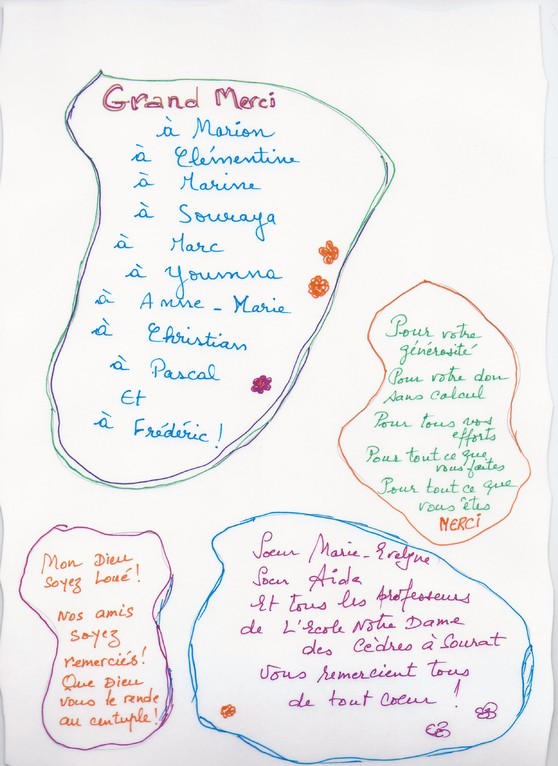 Grand Merci
à Marion
à Clémentine
à Marine
à Souraya
à Marc
à Youmna
à Anne-Marie
à Christian
à Pascal
Et
à Frédéric !
Pour votre
générosité
Pour votre don
sans calcul
Pour tous vos
efforts
Pour tout ce que
vous faites
Pour tout ce que
vous êtes
MERCI
Mon Dieu
soyez Loué !
Nos amis
soyez
remerciés !
Que Dieu
vous le rende
au centuple !
Soeur Marie-Evelyne
Soeur Aida
Et tous les professeurs
de L'Ecole Notre Dame
des Cèdres à Sourat
Vous remercient tous
de tout coeur !